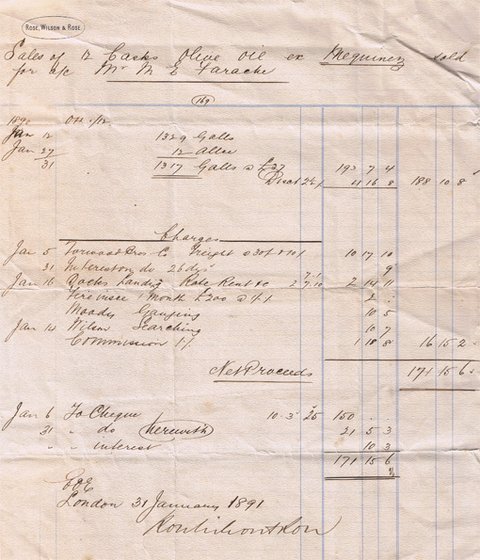 ROSE, WILSON & ROSE.
Sales of 12 Casks Olive Oil ex Mequinez sold
for a/c Mr M E Farache
169
Jan 12 1329 Galls
Jan 27 12 Allce
31 1317 Galls @ £37 193 7 4
Disct 2½% 4 16 8 188 10 8
Charges
Jan 5 Forwood Bros Co Freight @ 30/ + 10% 10 17 10
31 Interest on do 26 dys 9
Jan 16 Docks Landing Rate Rent &c 2 14 11
Fire Insce 1 Month £200 @ 2
Moody Gauging 10 5
Jan 14 Wilson Searching 10 7
Commission 1% 1 18 8 16 15 2
Net Proceeds 171 15 6
Jan 6 To Cheque 150
31 " do herewith 21 5 3
" " interest 10 3
171 15 6
E&OE
London 31 January 1891